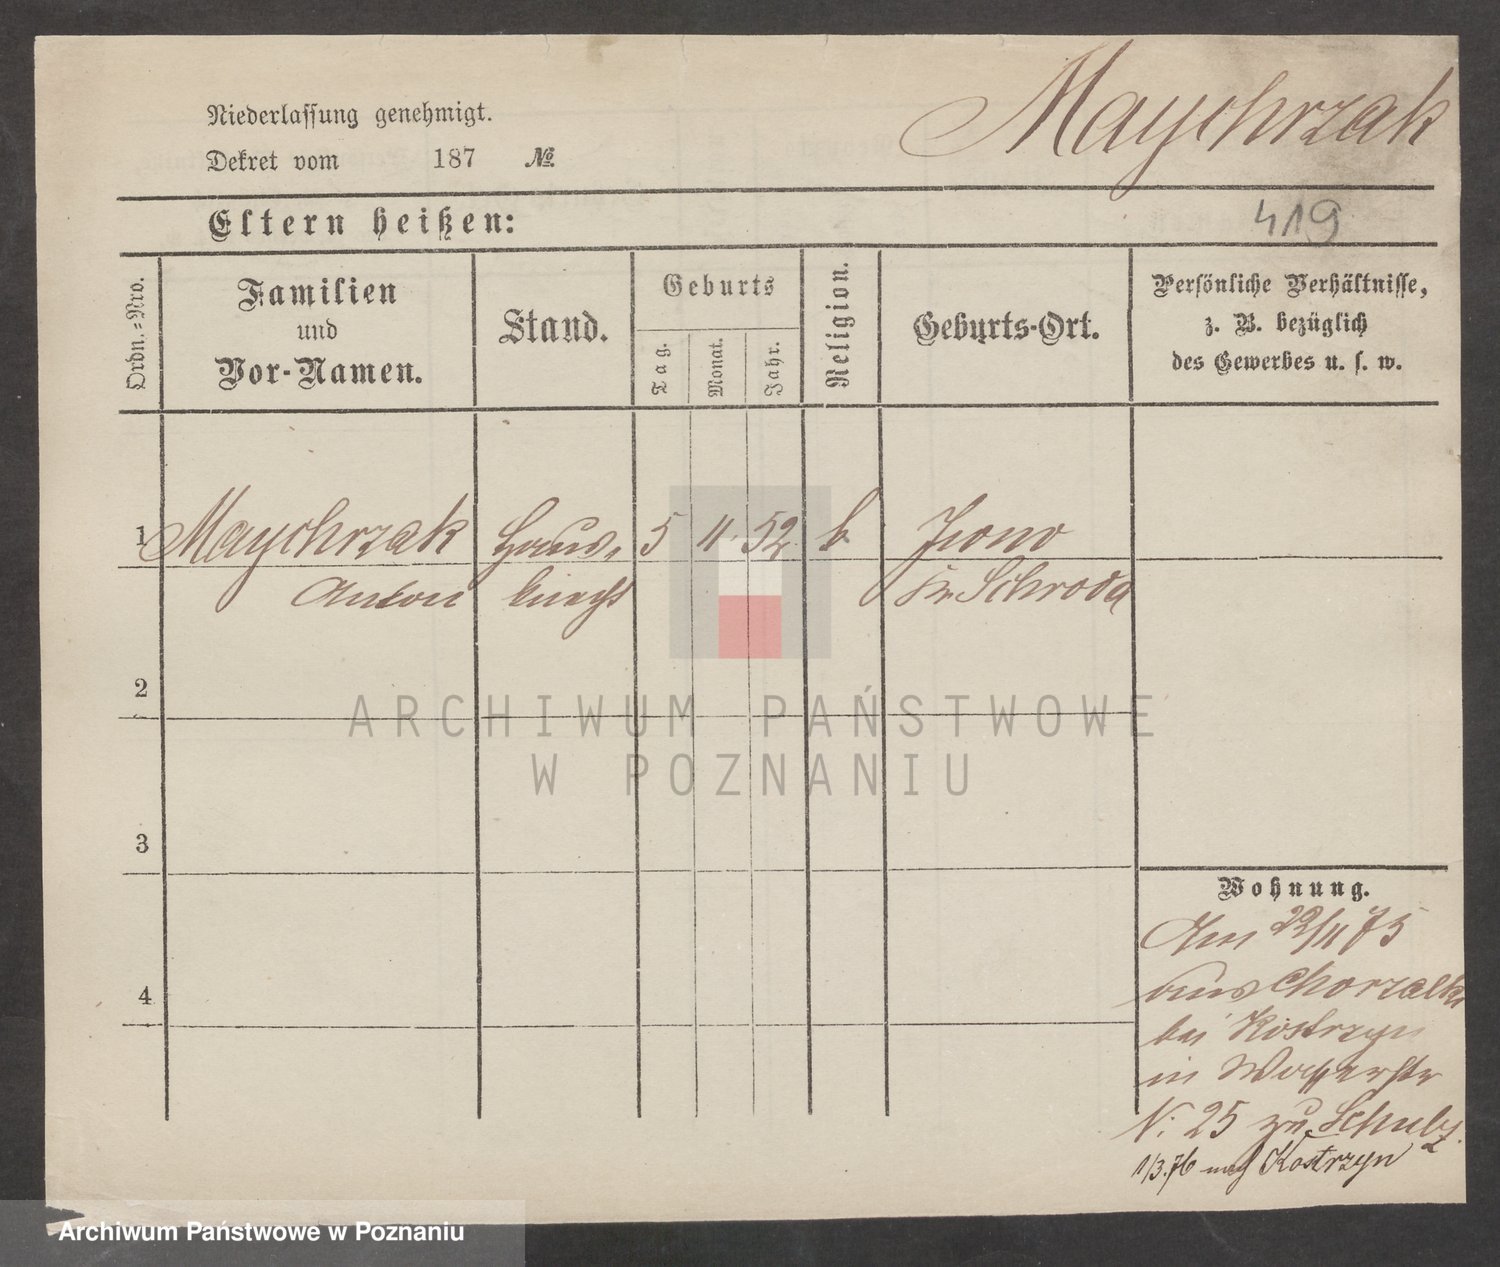 Maychrzak
Niederlassung genehmigt.
Dekret vom 187 №
Eltern heißen:
419
Ordn.=Nro.
Familien
und
Vor-Namen.
Stand.
Geburts
Tag.
Monat.
Jahr.
Religion.
Geburts-Ort.
Persönliche Verhältnisse,
z. B. bezüglich
des Gewerbes u. s. w.
1 Maychrzak Haus- 5 11 52 k
Anton knecht Kr. Schroda
2
3
4
Wohnung.
Am 22/11 75
aus Chorzalki
bei Kostrzyn
in Wasserstr
N: 25 zu Schulz.
1/3.76 nach Kostrzyn
ARCHIWUM PAŃSTWOWE
W POZNANIU
Archiwum Państwowe w Poznaniu